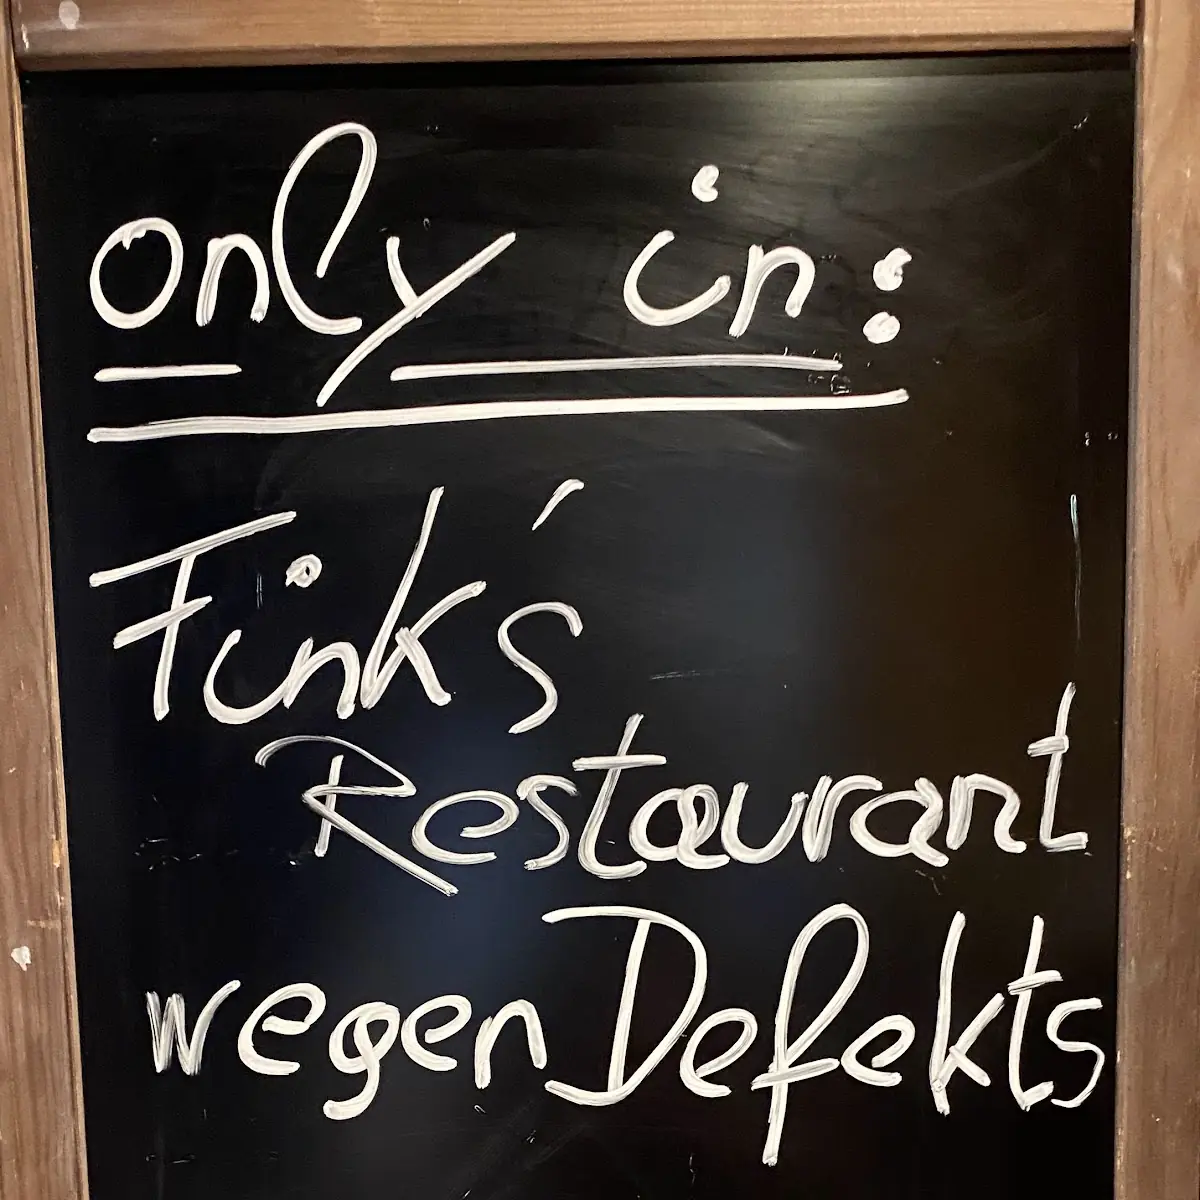 only in:
Fink´s
Restaurant
wegen Defekts